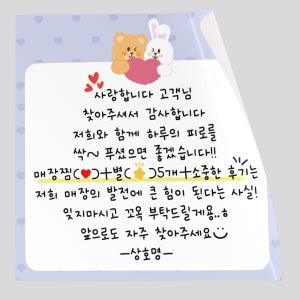 사랑합니다 고객님
찾아주셔서 감사합니다
저희와 함께 하루의 피로를
싹~ 푸셨으면 좋겠습니다!!
매장찜(❤)+별(⭐)5개+소중한 후기는
저희 매장의 발전에 큰 힘이 된다는 사실!
잊지마시고 꼬옥 부탁드릴게용..ㅎ
앞으로도 자주 찾아주세요☺
-상호명-